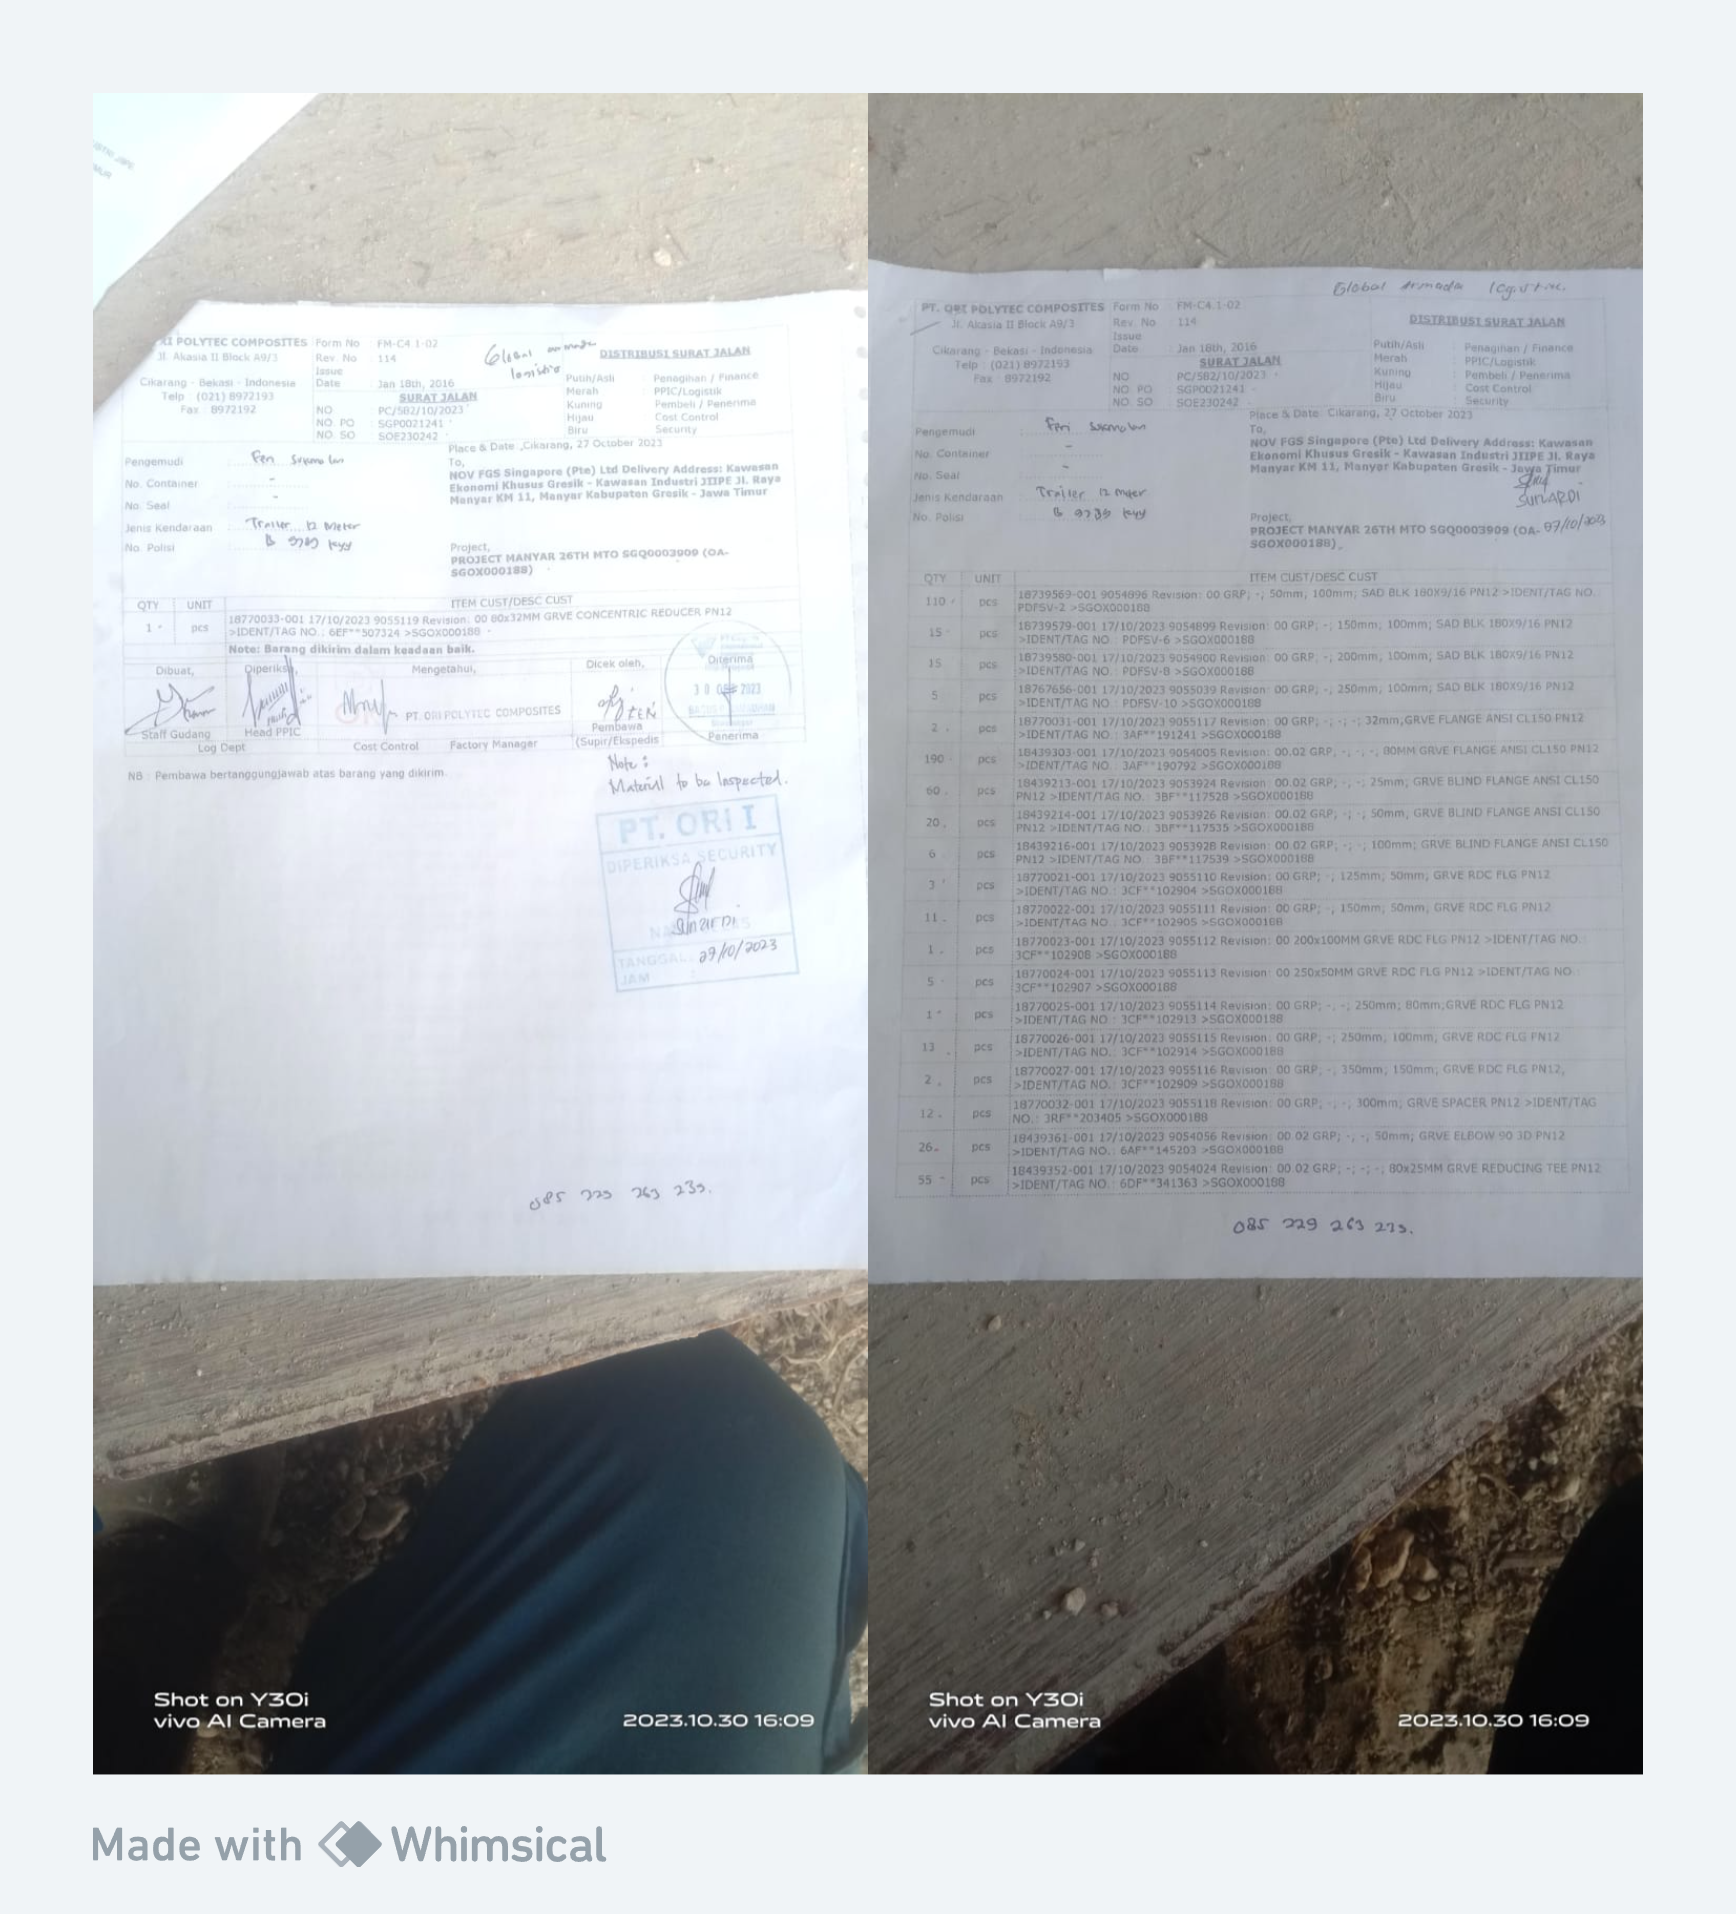 RI POLYTEC COMPOSITES Form No FM-C4 1-02
Jl. Akasia II Block A9/3 Rev. No 114
Issue
Cikarang - Bekasi - Indonesia Date : Jan 18th, 2016
Telp (021) 8972193 SURAT JALAN
Fax : 8972192 NO PC/582/10/2023
NO. PO : SGP0021241
NO. SO SOE230242
Global
DISTRIBUSI SURAT JALAN
Putih/Asli : Penagihan / Finance
Merah : PPIC/Logistik
Kuning : Pembeli / Penerima
Hijau : Cost Control
Biru Security
Pengemudi :
No. Container : -
No. Seal : -
Jenis Kendaraan : Trailer 12 Meter
No. Polisi : B
Place & Date : Cikarang, 27 October 2023
To,
NOV FGS Singapore (Pte) Ltd Delivery Address: Kawasan
Ekonomi Khusus Gresik - Kawasan Industri JIIPE Jl. Raya
Manyar KM 11, Manyar Kabupaten Gresik - Jawa Timur
Project,
PROJECT MANYAR 26TH MTO SGQ0003909 (OA-
SGOX000188)
QTY UNIT ITEM CUST/DESC CUST
1 pcs 18770033-001 17/10/2023 9055119 Revision: 00 80x32MM GRVE CONCENTRIC REDUCER PN12
>IDENT/TAG NO.: 6EF**507324 >SGOX000188
Note: Barang dikirim dalam keadaan baik.
Dibuat, Diperiksa, Mengetahui, Dicek oleh, Diterima
2023
PT. ORI POLYTEC COMPOSITES
Staff Gudang Head PPIC Pembawa Penerima
Log Dept Cost Control Factory Manager (Supir/Ekspedis
NB : Pembawa bertanggungjawab atas barang yang dikirim.
Note :
Material to be Inspected.
PT. ORI I
DIPERIKSA SECURITY
TANGGAL : 29/10/2023
JAM :
Shot on Y30i
vivo AI Camera
2023.10.30 16:09
Global Armada
PT. ORI POLYTEC COMPOSITES Form No : FM-C4.1-02
Jl. Akasia II Block A9/3 Rev. No : 114
Issue
Cikarang - Bekasi - Indonesia Date : Jan 18th, 2016
Telp : (021) 8972193 SURAT JALAN
Fax : 8972192 NO PC/582/10/2023
NO PO SGP0021241
NO. SO SOE230242
DISTRIBUSI SURAT JALAN
Putih/Asli : Penagihan / Finance
Merah : PPIC/Logistik
Kuning : Pembeli / Penerima
Hijau : Cost Control
Biru : Security
Pengemudi : Feri
No. Container : -
No. Seal : -
Jenis Kendaraan : Trailer 12 meter
No. Polisi : B
Place & Date : Cikarang, 27 October 2023
To,
NOV FGS Singapore (Pte) Ltd Delivery Address: Kawasan
Ekonomi Khusus Gresik - Kawasan Industri JIIPE Jl. Raya
Manyar KM 11, Manyar Kabupaten Gresik - Jawa Timur
SUNARDI
Project,
PROJECT MANYAR 26TH MTO SGQ0003909 (OA-
SGOX000188)
QTY UNIT ITEM CUST/DESC CUST
110 pcs 18739569-001 9054896 Revision: 00 GRP; -; 50mm, 100mm; SAD BLK 180X9/16 PN12 >IDENT/TAG NO.
PDFSV-2 >SGOX000188
15 pcs 18739579-001 17/10/2023 9054899 Revision: 00 GRP; -; 150mm; 100mm; SAD BLK 180X9/16 PN12
>IDENT/TAG NO.: PDFSV-6 >SGOX000188
15 pcs 18739580-001 17/10/2023 9054900 Revision: 00 GRP; -; 200mm, 100mm; SAD BLK 180X9/16 PN12
>IDENT/TAG NO.: PDFSV-8 >SGOX000188
5 pcs 18767656-001 17/10/2023 9055039 Revision: 00 GRP; -; 250mm, 100mm; SAD BLK 180X9/16 PN12
>IDENT/TAG NO.: PDFSV-10 >SGOX000188
2 pcs 18770031-001 17/10/2023 9055117 Revision: 00 GRP; -; -; -; 32mm,GRVE FLANGE ANSI CL150 PN12
>IDENT/TAG NO.: 3AF**191241 >SGOX000188
190 pcs 18439303-001 17/10/2023 9054005 Revision: 00.02 GRP, -; -; -, 80MM GRVE FLANGE ANSI CL150 PN12
>IDENT/TAG NO.: 3AF**190792 >SGOX000188
60 pcs 18439213-001 17/10/2023 9053924 Revision: 00.02 GRP, -; -; 25mm, GRVE BLIND FLANGE ANSI CL150
PN12 >IDENT/TAG NO.: 3BF**117528 >SGOX000188
20 pcs 18439214-001 17/10/2023 9053926 Revision: 00.02 GRP, -; -; 50mm, GRVE BLIND FLANGE ANSI CL150
PN12 >IDENT/TAG NO.: 3BF**117535 >SGOX000188
6 pcs 18439216-001 17/10/2023 9053928 Revision: 00.02 GRP, -; -; 100mm; GRVE BLIND FLANGE ANSI CL150
PN12 >IDENT/TAG NO.: 3BF**117539 >SGOX000188
3 pcs 18770021-001 17/10/2023 9055110 Revision: 00 GRP; -, 125mm; 50mm; GRVE RDC FLG PN12
>IDENT/TAG NO.: 3CF**102904 >SGOX000188
11 pcs 18770022-001 17/10/2023 9055111 Revision: 00 GRP; -, 150mm; 50mm; GRVE RDC FLG PN12
>IDENT/TAG NO.: 3CF**102905 >SGOX000188
1 pcs 18770023-001 17/10/2023 9055112 Revision: 00 200x100MM GRVE RDC FLG PN12 >IDENT/TAG NO.:
3CF**102908 >SGOX000188
5 pcs 18770024-001 17/10/2023 9055113 Revision: 00 250x50MM GRVE RDC FLG PN12 >IDENT/TAG NO.:
3CF**102907 >SGOX000188
1 pcs 18770025-001 17/10/2023 9055114 Revision: 00 GRP; -; -; 250mm; 80mm,GRVE RDC FLG PN12
>IDENT/TAG NO.: 3CF**102913 >SGOX000188
13 pcs 18770026-001 17/10/2023 9055115 Revision: 00 GRP; -; 250mm, 100mm; GRVE RDC FLG PN12
>IDENT/TAG NO.: 3CF**102914 >SGOX000188
2 pcs 18770027-001 17/10/2023 9055116 Revision: 00 GRP; -; 350mm; 150mm; GRVE RDC FLG PN12,
>IDENT/TAG NO.: 3CF**102909 >SGOX000188
12 pcs 18770032-001 17/10/2023 9055118 Revision: 00 GRP, -; -, 300mm; GRVE SPACER PN12 >IDENT/TAG
NO.: 3RF**203405 >SGOX000188
26 pcs 18439361-001 17/10/2023 9054056 Revision: 00.02 GRP; -; -; 50mm; GRVE ELBOW 90 3D PN12
>IDENT/TAG NO.: 6AF**145203 >SGOX000188
55 pcs 18439352-001 17/10/2023 9054024 Revision: 00.02 GRP; -; -; -, 80x25MM GRVE REDUCING TEE PN12
>IDENT/TAG NO.: 6DF**341363 >SGOX000188
Shot on Y30i
vivo AI Camera
2023.10.30 16:09
Made with Whimsical